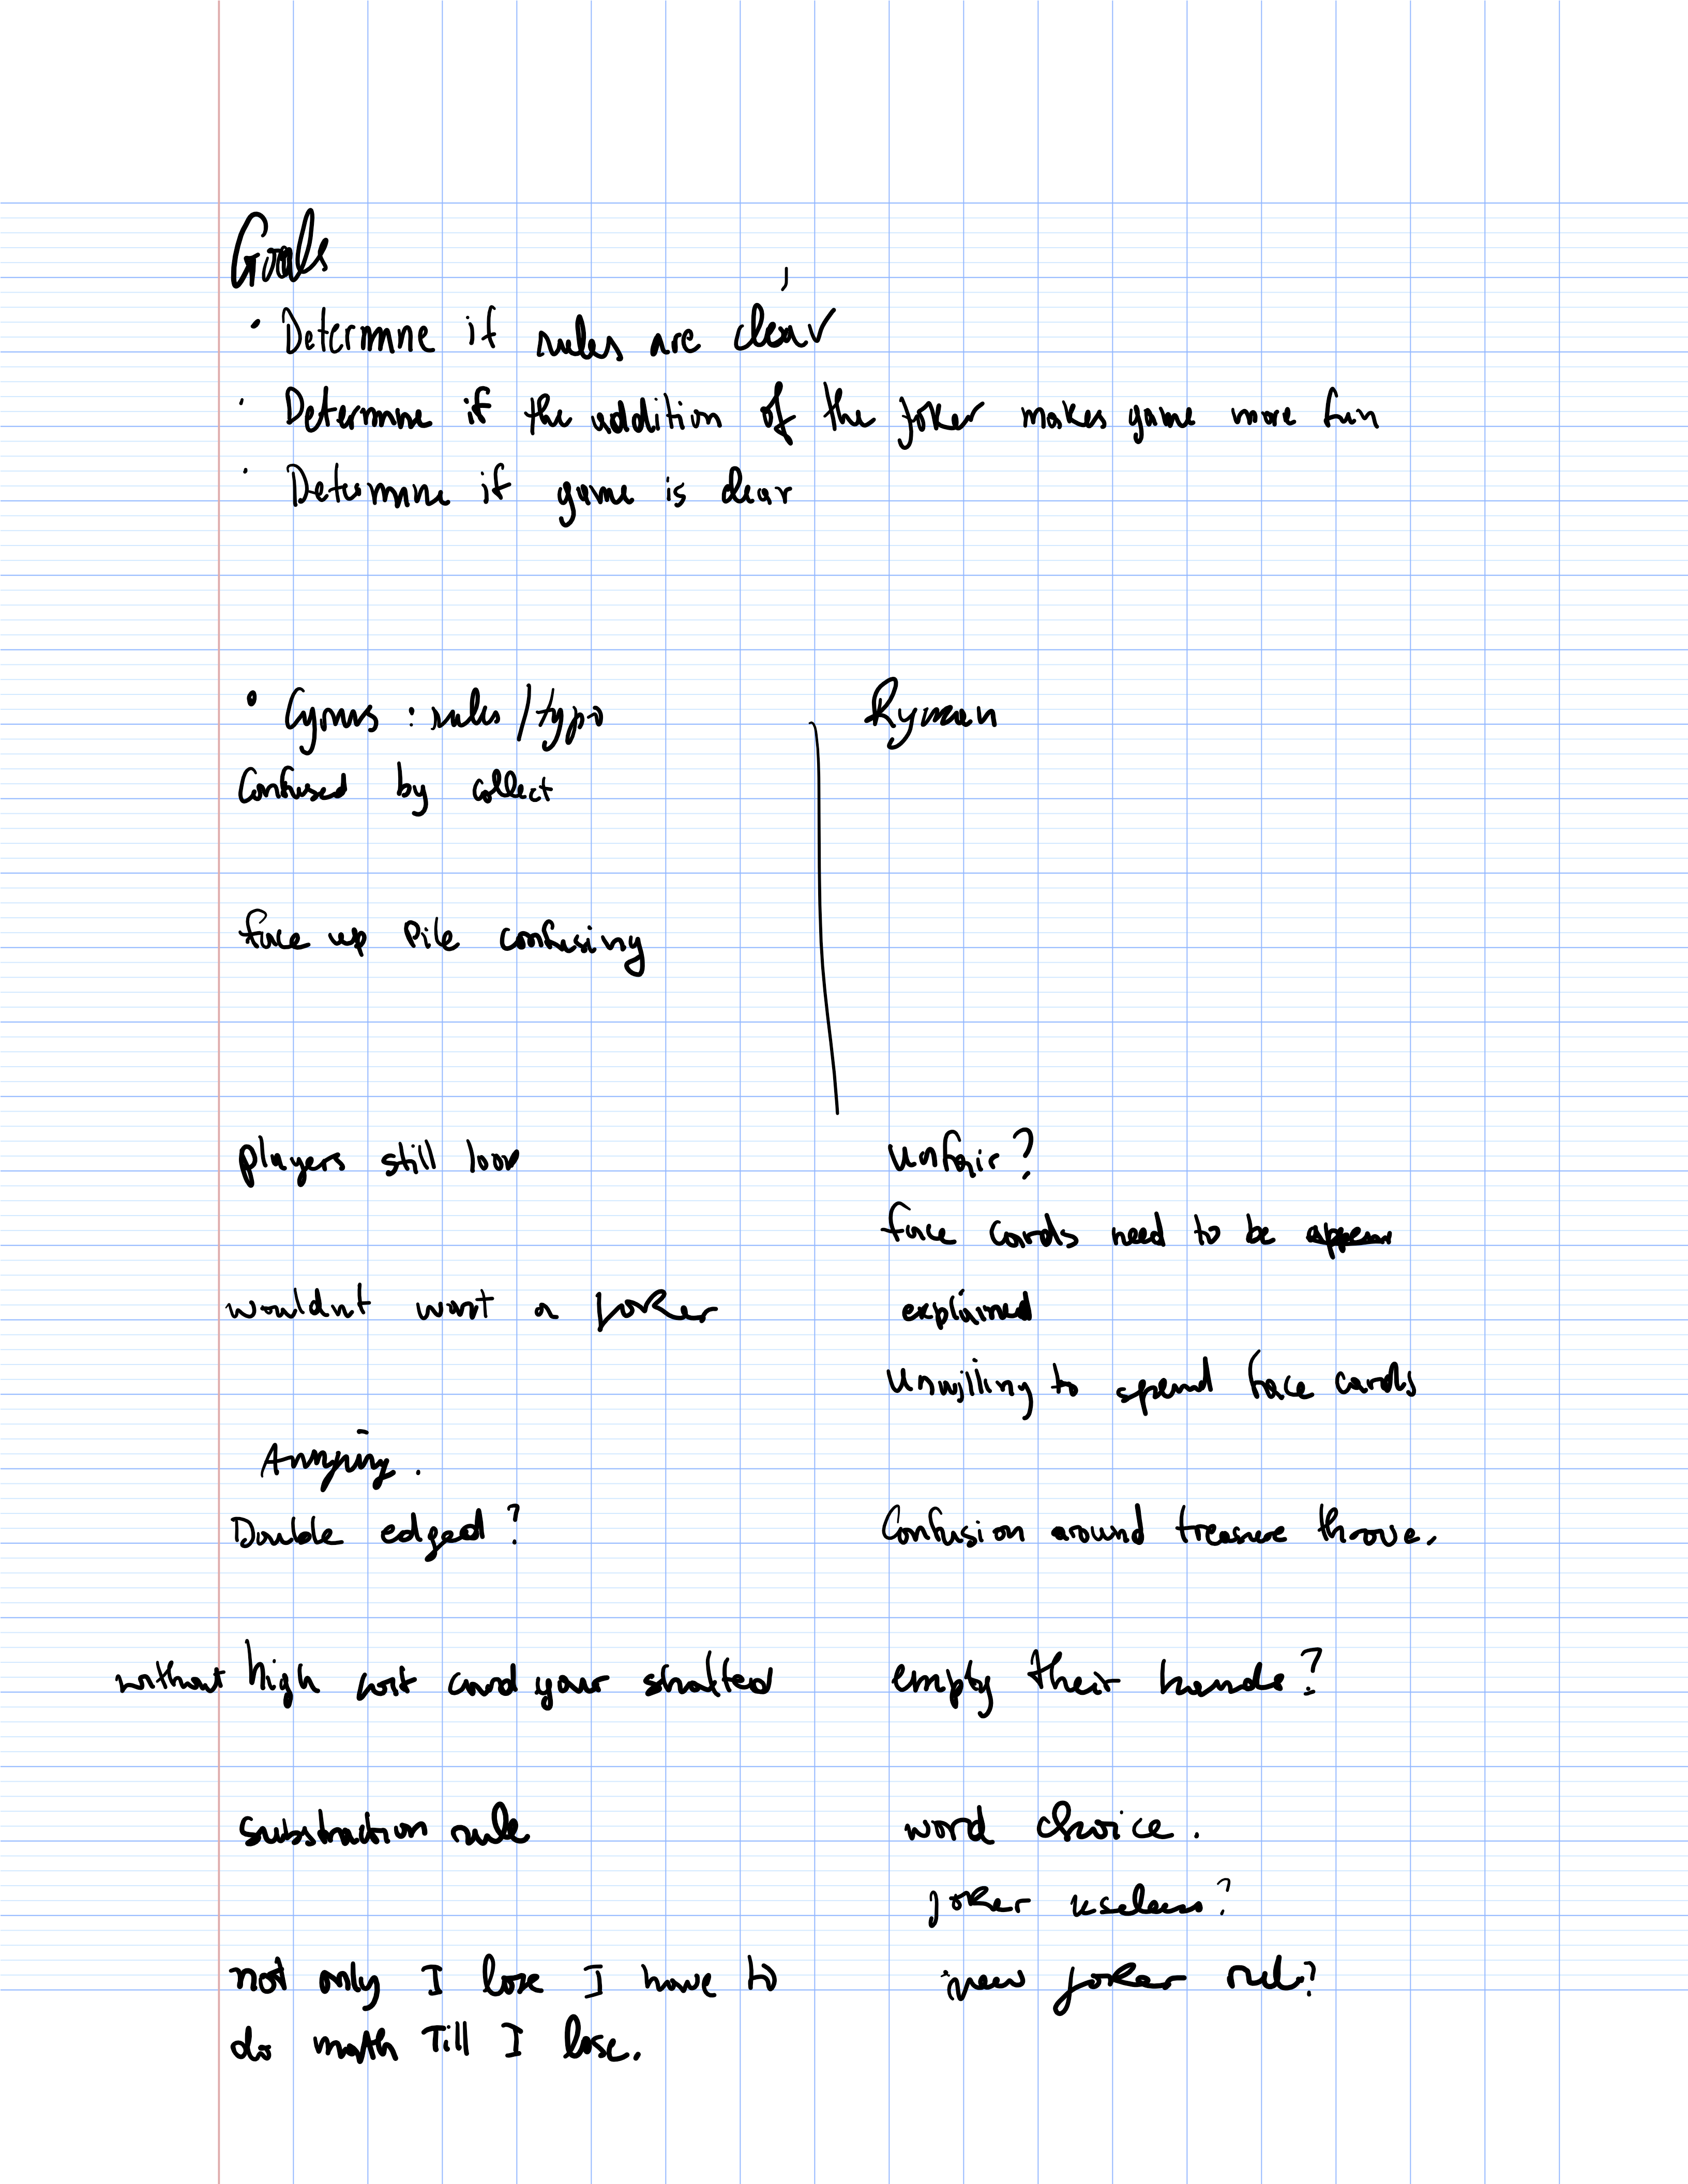 Goals
• Determine if rules are clear
• Determine if the addition of the joker makes game more fun
• Determine if game is clear
• Cyrus : rules / typo
Confused by collect
face up Pile confusing
players still
wouldnt want a joker
Annoying.
Double edged?
without high cost card your shafted
substraction rule
not only I lose I have to
do math Till I lose.
Ryman
unfair?
face cards need to be
explained
Unwilling to spend face cards
Confusion around treasure throve.
empty their hands?
word choice.
joker useless?
new joker rule?